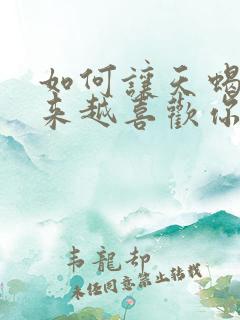 如何讓天蝎
來越喜歡你
韦龍却
未经同意禁止转载